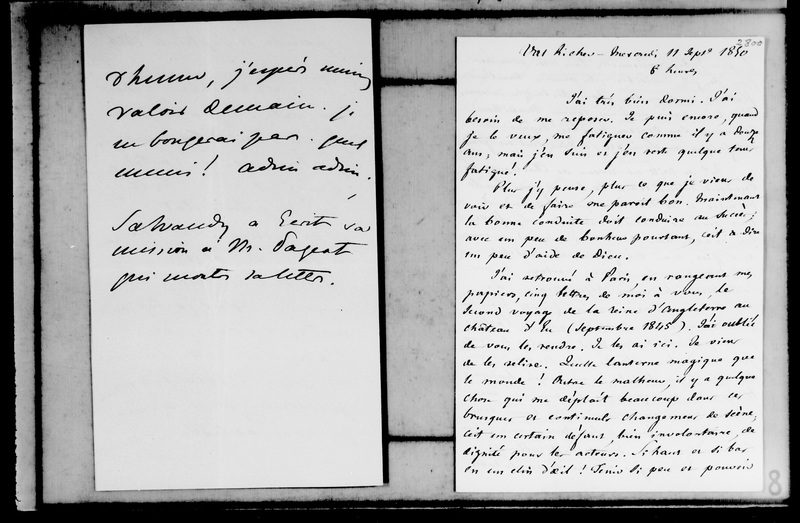 rhume, j'espère mieux
valoir demain. je
ne bougerai pas. quel
ennui! adieu adieu.
Salvandy a écrit sa
mission à M. Pageot
qui montre sa lettre.
2800
Val Richer - Mercredi 11 Septe 1850
6 heures
J'ai très bien dormi. J'ai
besoin de me reposer. Je puis encore, quand
je le veux, me fatiguer comme il y a douze
ans; mais j'en suis et j'en reste quelque tems
fatigué.
Plus j'y pense, plus ce que je viens de
voir et de faire me paroit bon. Maintenant
la bonne conduite doit conduire au succès;
avec un peu de bonheur pourtant, c'est à dire
un peu d'aide de Dieu.
J'ai retrouvé à Paris, en rangeant mes
papiers, cinq lettres de moi à vous, le
second voyage de la reine d'Angleterre au
château d'Eu (Septembre 1845). J'ai oublié
de vous les rendre. Je les ai ici. Je viens
de les relire. Quelle lanterne magique que
le monde! Outre le malheur, il y a quelque
chose qui me déplait beaucoup dans ces
brusques et continuels changemens de scène;
c'est un certain défaut, bien involontaire, de
dignité pour les acteurs. Si haut et si bas
en un clin d'œil! Tenir si peu et pouvoir
8